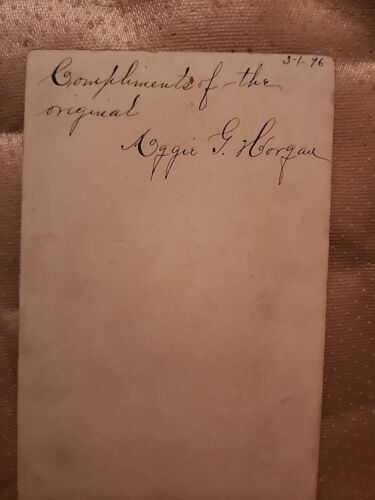 3-1-96
Compliments of the
original
Aggie G. Horgan